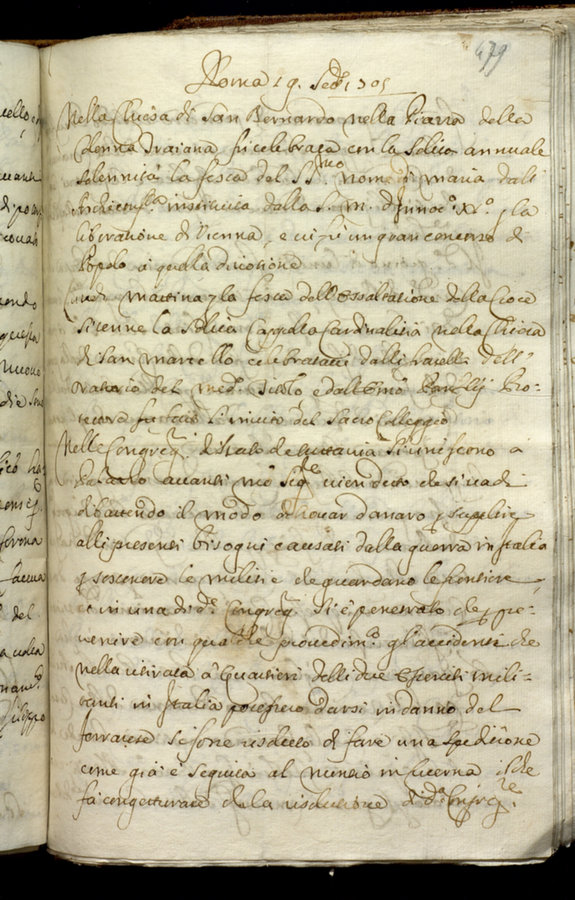 479
Roma 19. Sett.e 1705
Nella Chiesa di San Bernardo nella Piazza della
Colonna Traiana fu celebrata con la Solita annuale
Solennità la festa del SS.mo nome di Maria dall'
Archiconf.ta instituita dalla S. M. d'Innoc.o XI.o p la
liberatione di Vienna, e vi fù un gran concorso di
Popolo à quella divotione
Lunedì mattina p la festa dell'Essaltatione della Croce
si tenne la Solita Cappella Cardinalitia nella Chiesa
di San Marcello celebratavi dalli fratelli dell'
Oratorio del med.o Titolo e dall'Emo Panfilij Pro-
tettore fu fatto l'invito del Sacro Colleggio
Nelle Congreg.ni di Stato che tuttavia si uniscono a
Palazzo avanti Nro Sig.re vien detto che si vadi
dibattendo il modo di trovar danaro p supplire
alli presenti bisogni causati dalla guerra in Italia
p sostenere le militie che guardano le frontiere,
et in una di d.e Congreg.ni si è penetrato che p pre-
venire con qualche provedim.to gl'accidenti che
nella ritirata a' Quartieri delli due Eserciti mili-
tanti in Italia potessero darsi in danno del
ferrarese si fosse risoluto di fare una speditione
come già è seguita al nuntio in Lucerna, il che
fà congetturare che la risolutione di d.a Congreg.ne